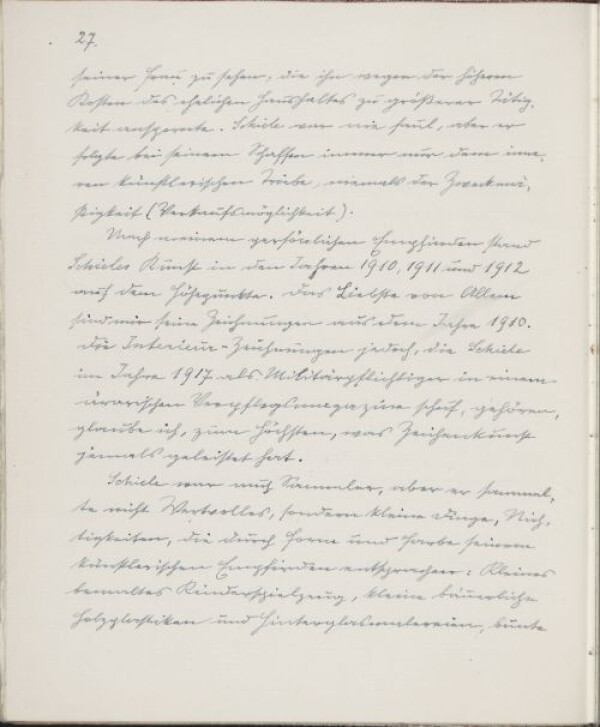 27.
seiner Frau zu sehen, die ihn wegen der höheren
Kosten des ehelichen Haushaltes zu größerer Tätig-
keit anspornte. Schiele war nie faul, aber er
folgte bei seinem Schaffen immer nur dem inne-
ren künstlerischen Triebe, niemals der Zweckmä-
ßigkeit (Verkaufsmöglichkeit).
Nach meinem persönlichen Empfinden stand
Schieles Kunst in den Jahren 1910, 1911 und 1912
auf dem Höhepunkte. Das Liebste von Allem
sind mir seine Zeichnungen aus dem Jahre 1910.
Die Interieur-Zeichnungen jedoch, die Schiele
im Jahre 1917 als Militärpflichtiger in einem
ärarischen Verpflegsmagazine schuf, gehören,
glaube ich, zum Höchsten, was Zeichenkunst
jemals geleistet hat.
Schiele war auch Sammler, aber er sammel-
te nicht Wertvolles, sondern kleine Dinge, Nich-
tigkeiten, die durch Form und Farbe seinem
künstlerischen Empfinden entsprachen: Kleines
bemaltes Kinderspielzeug, kleine bäuerliche
Holzplastiken und Hinterglasmalereien, bunte